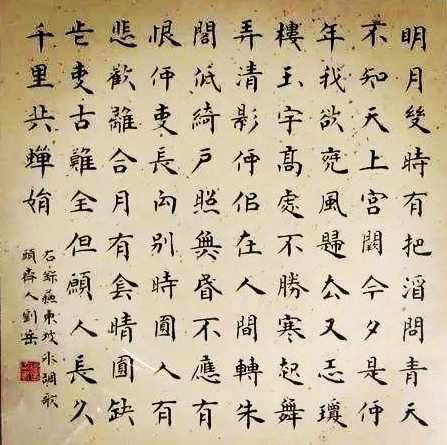 明月幾時有把酒問青天
不知天上宮闕今夕是何
年我欲乘風歸去又恐瓊
樓玉宇高處不勝寒起舞
弄清影何似在人間轉朱
閣低綺戶照無眠不應有
恨何事長向別時圓人有
悲歡離合月有陰晴圓缺
此事古難全但願人長久
千里共嬋娟
右錄蘇東坡水調歌
人劉岳